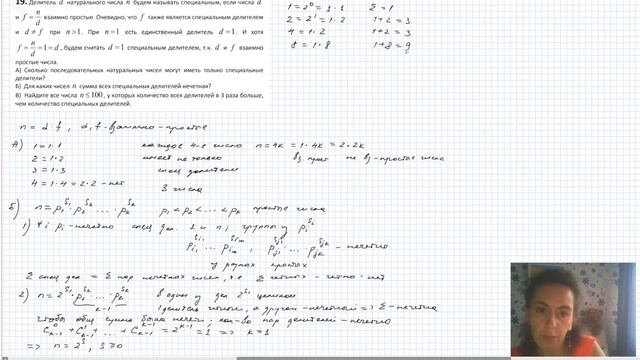 19. Делитель d натурального числа n будем называть специальным, если числа d
и f = n/d взаимно простые. Очевидно, что f также является специальным делителем
и d ≠ f при n > 1. При n = 1 есть единственный делитель d = 1. И хотя
f = n/d = 1 = d, будем считать d = 1 специальным делителем, т.к. d и f взаимно
простые числа.
А) Сколько последовательных натуральных чисел могут иметь только специальные
делители?
Б) Для каких чисел n сумма всех специальных делителей нечетная?
В) Найдите все числа n ≤ 100, у которых количество всех делителей в 3 раза больше,
чем количество специальных делителей.
1 = 2⁰ = 1·1 Σ = 1
2 = 2¹ = 1·2 1+2 = 3
4 = 1·2 1+2 = 3
8 = 1·8 1+8 = 9
n = d·f, d,f - взаимно-простые
А) 1 = 1·1 каждое 4-е число n = 4k = 1·4k = 2·2k
2 = 1·2 имеет не только вз. прост не вз-простые числа
3 = 1·3 спец делители
4 = 1·4 = 2·2 - нет 3 числа
Б) n = p₁^S₁ · p₂^S₂ · ... · p_k^S_k p₁ < p₂ < ... < p_k простые числа
1) ∀i p_i - нечетно спец дел. 1 и n; группы у p_i^S_i
p_i₁^S_i₁ ... p_im^S_im, p_j₁^S_j₁ ... p_jk^S_jk - нечетно
у разных простых
Σ спец дел = Σ пар нечетных чисел, т.е. Σ четных - четно - нет
2) n = 2^S₁ · p₂^S₂ ... p_k^S_k в одном из дел 2^S₁ целиком
k-1 1 делитель четный, а другой - нечетный => Σ - нечетна
чтобы общ сумма была нечетн. кол-во пар делителей - нечетно
C⁰_k-1 + C¹_k-1 + ... + C^k-1_k-1 = 2^k-1 = 1 => k = 1
=> n = 2^S, S ≥ 0